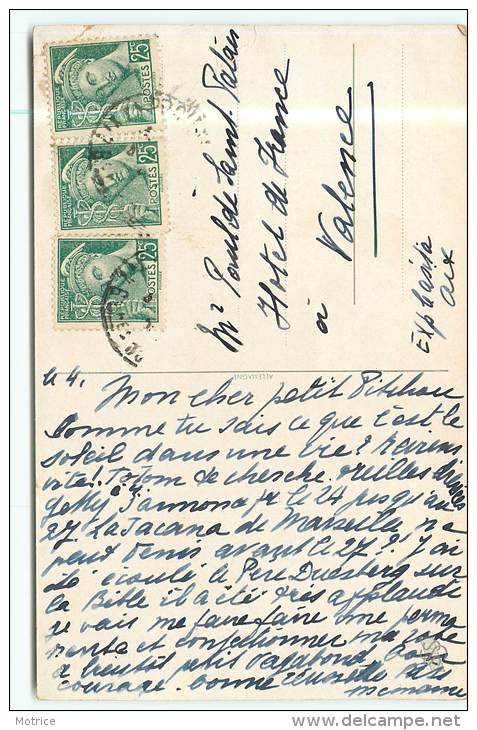 RÉPUBLIQUE FRANÇAISE
25c
POSTES
RÉPUBLIQUE FRANÇAISE
25c
POSTES
RÉPUBLIQUE FRANÇAISE
25c
POSTES
Mr Paul de Saint Palais
Hotel de France
à
Valence
Aix
ALLEMAGNE
Mon cher petit
Comme tu sais ce que c'est le
soleil dans une vie? Reviens
vite! Totom te cherche oreilles
s'annonce le 24 jusqu'au
27. La de Marseille ne
peut venir avant le 27? J'ai
été écouté le Père Duesberg sur
la Bible il a été très applaudi
je vais me faire faire une perma
nente et confectionner ma robe
à bientôt petit Vagabond bon
courage. bonne
© delcampe.net
Motrice